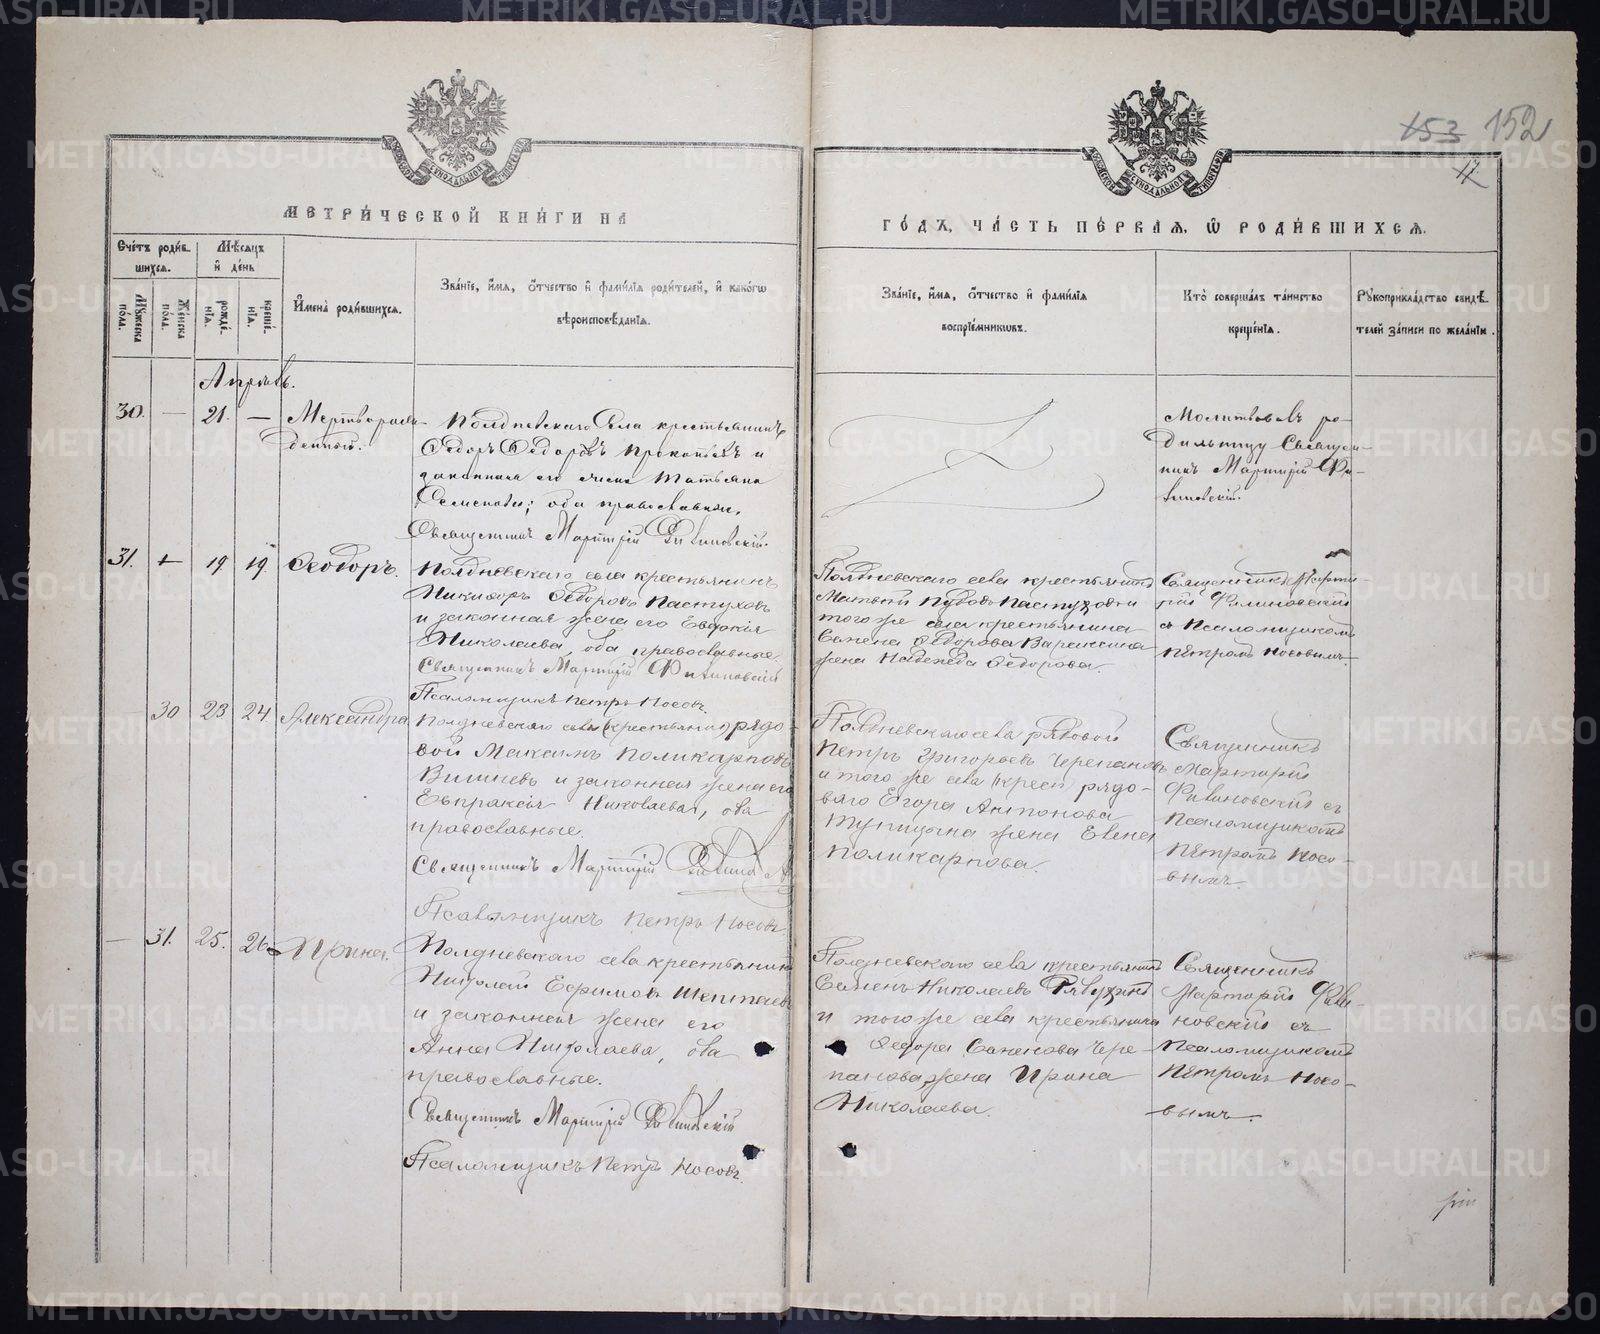 153 152
17
МОСКОВСКОЙ СѴНОДАЛЬНОЙ ТИПОГРАФІИ
МОСКОВСКОЙ СѴНОДАЛЬНОЙ ТИПОГРАФІИ
МЕТРИ́ЧЕСКОЙ КНИ́ГИ НА
ГО́ДЪ, ЧА́СТЬ ПЕ́РВАЯ, Ѽ РОДИ́ВШИХСЯ.
Сче́тъ роди́в-
шихся.
Мѣ́сяцъ
и҆ де́нь
Му́жеска по́ла.
Же́нска по́ла.
рожде́нїя.
креще́нїя.
И҆мена̀ роди́вшихся.
Зва́нїе, и҆́мя, ѻ҆́тчество и҆ фами́лїя роди́телей, и҆ како́гѡ
вѣроисповѣ́данїя.
Зва́нїе, и҆́мя, ѻ҆́тчество и҆ фами́лїя
воспрїе́мникѡвъ.
Кто̀ соверша́лъ та́инство
креще́нїя.
Рꙋкоприкла́дство свидѣ́-
телей за́писи по жела́нїю.
Апрѣль.
30. — 21. — Мертворож-
денный.
Полдневскаго села крестьянинъ
Ѳедоръ Ѳедоровъ и
законная его жена Татьяна
Семенова; оба православные.
Священникъ Мартирій Филиновскій.
Молитвовалъ ро-
дильницу Священ-
никъ Мартирій Фи-
линовскій.
31. + 19 19. Ѳеодоръ.
Полдневскаго села крестьянинъ
Никифоръ Ѳедоровъ Пастуховъ
и законная жена его Евдокія
Николаева, оба православные.
Священникъ Мартирій Филиновскій
Псаломщикъ Петръ Носовъ.
Полдневскаго села крестьянинъ
Матвей Пастуховъ и
того же села крестьянина
Семена Ѳедорова Вараксина
жена Надежда Ѳедорова.
Священникъ Марти-
рій Филиновскій
съ Псаломщикомъ
Петромъ Носовымъ.
— 30 23 24 Александра
Полдневскаго села (крестьянин) рядо-
вой Максимъ Поликарповъ
и законная жена его
Евпраксія Николаева, оба
православные.
Священникъ Мартирій
Псаломщикъ Петръ Носовъ
Полдневскаго села рядовой
Петръ Григорьевъ Черепановъ
и того же села (крест) рядо-
ваго Егора Антонова
Тупицына жена Елена
Поликарпова.
Священникъ
Мартирій
Филиновскій съ
Псаломщикомъ
Петромъ Носо-
вымъ.
— 31. 25. 26 Ирина.
Полдневскаго села крестьянинъ
Николай Ефимовъ
и законная жена его
Анна Николаева, оба
православные.
Священникъ Мартирій Филиновскій
Псаломщикъ Петръ Носовъ.
Полдневскаго села крестьянинъ
Семенъ Николаевъ
и того же села крестьянина
Ѳедора Семенова Чере-
панова жена Ирина
Николаева.
Священникъ
Мартирій Фили-
новскій съ
Псаломщикомъ
Петромъ Носо-
вымъ.